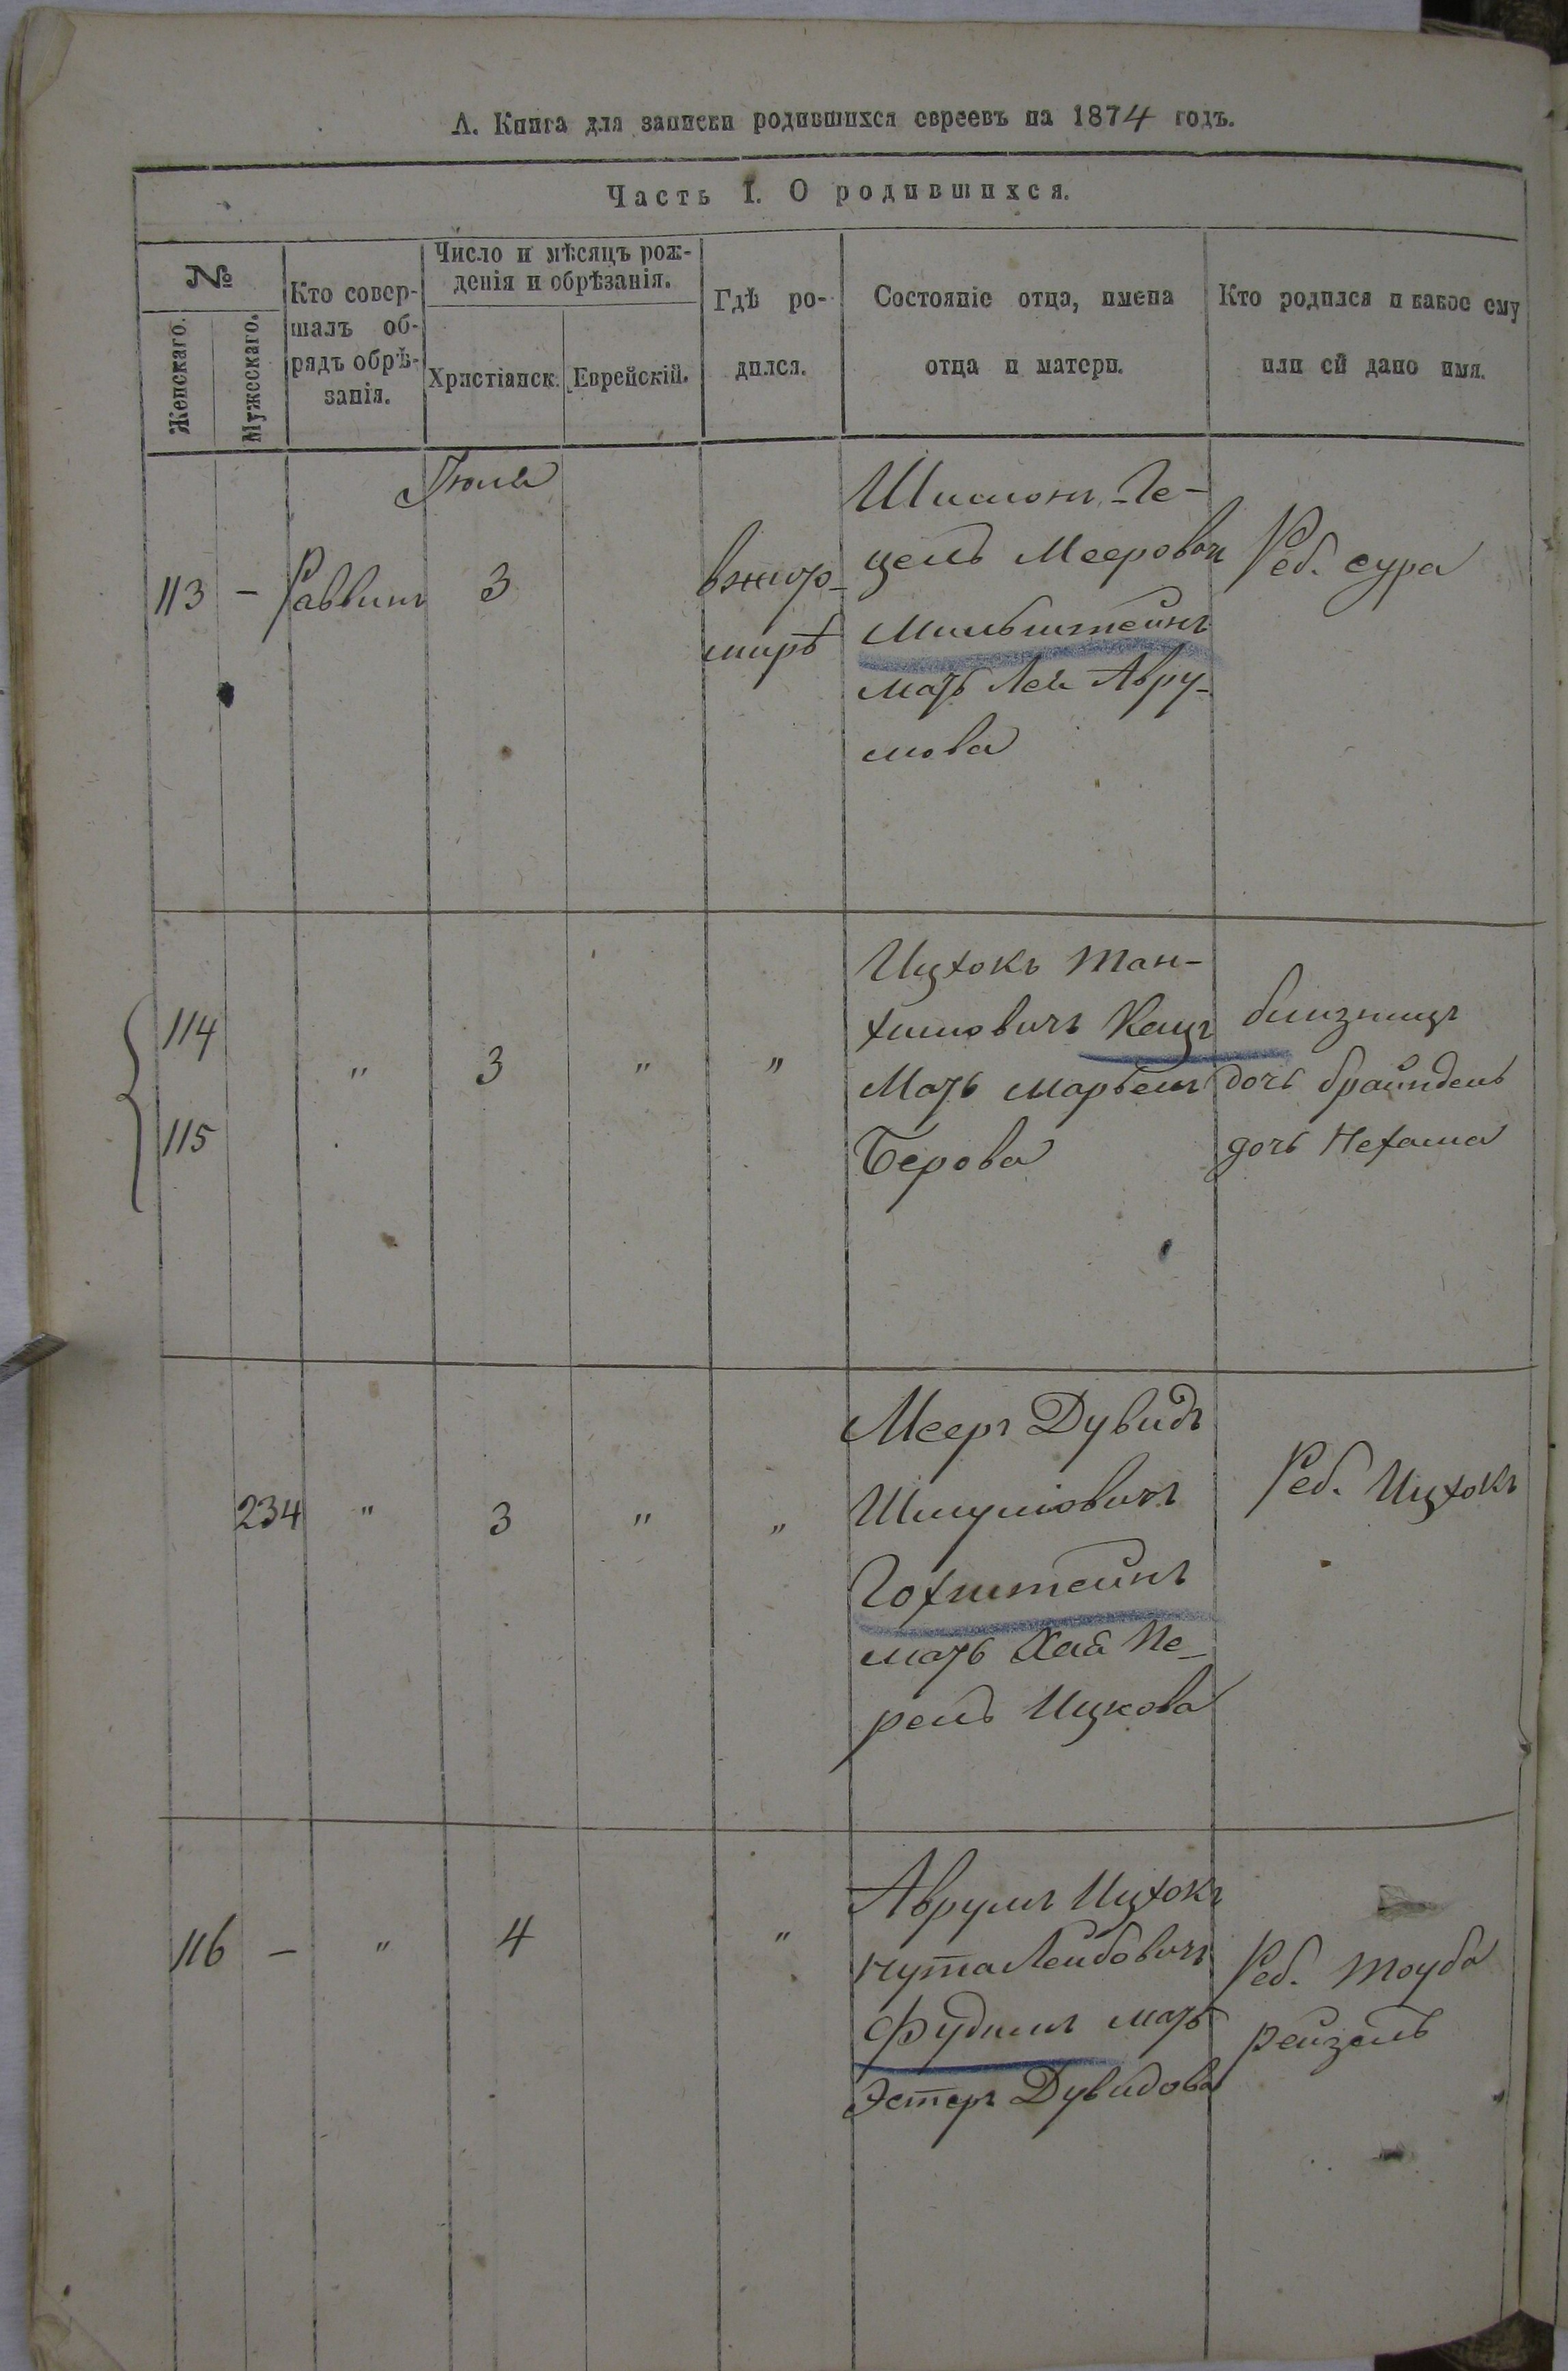 А. Книга для записки родившихся евреевъ на 1874 годъ.
Часть I. О родившихся.
№
Женскаго.
Мужескаго.
Кто совер-
шалъ об-
рядъ обрѣ-
занія.
Число и мѣсяцъ рож-
денія и обрѣзанія.
Христіанск.
Еврейскій.
Гдѣ ро-
дился.
Состояніе отца, имена
отца и матери.
Кто родился и какое ему
или ей дано имя.
113 – Раввинъ
3
въ житo-
мирѣ
Шимонъ Ге-
цель Мееровъ
Мильштейнъ
мать Лея Авру-
мова
Реб. сура
114
115
"
3
"
"
Ицхокъ Тан-
химовичъ Кацъ
Мать
Берова
близницъ
дочь брайндель
дочь Нехама
234
"
3
"
"
Мееръ Дувидъ
Шмулiовичъ
Гохштейнъ
мать Хая Пе-
рель Ицкова
Реб. Ицхокъ
116 –
"
4
"
Аврумъ Ицхокъ
нута Лейбовичъ
мать
Эстеръ Дувидова
Реб. Тоуба
рейзель